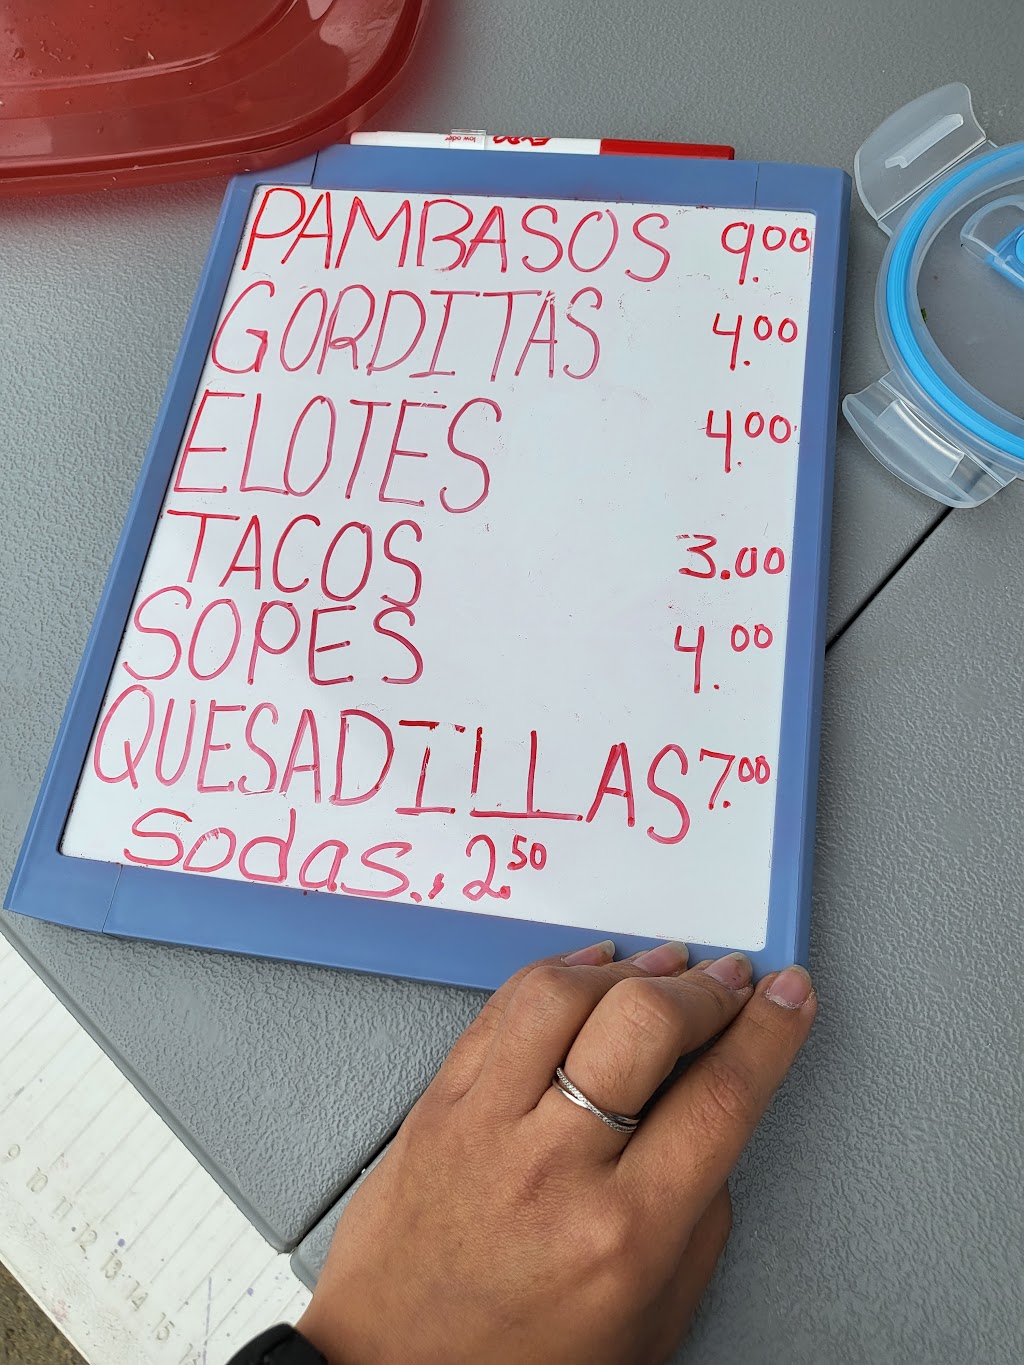 EXPO low odor
PAMBASOS 9.00
GORDITAS 4.00
ELOTES 4.00
TACOS 3.00
SOPES 4.00
QUESADILLAS 7.00
Sodas., 2.50
9 10 11 12 13 14 15